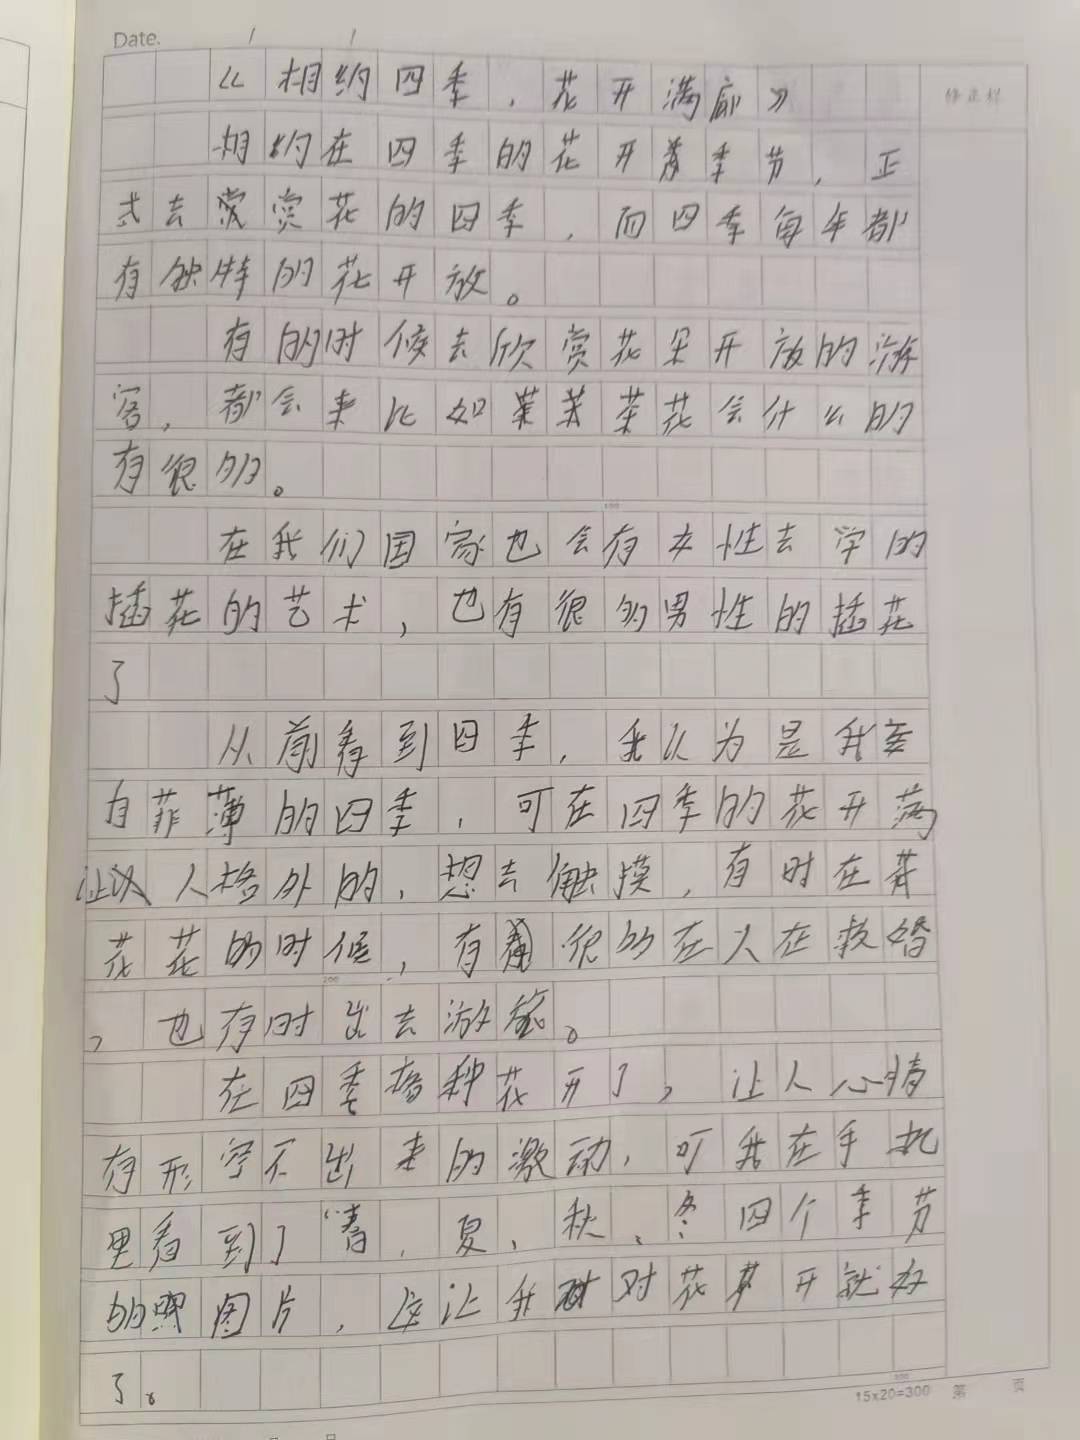 Date. / /
《相约四季，花开满廊》
修正栏
相约在四季的花开着季节，正
式去赏赏花的四季，而四季每年都
有独特的花开放。
有的时候去欣赏花朵开放的游
客，都会来比如菜茶花会什么的
有很多。
100
在我们国家也会有女性去学的
插花的艺术，也有很多男性的插花
了
从前看到四季，我认为是我妄
自菲薄的四季，可在四季的花开满
让 人格外的，想去触摸，有时在着
花花的时候，有 很多在人在救婚
200
，也有时出去游
在四季播种花开了，让人心情
有形容不出来的激动，可我在手机
里看到了“春，夏，秋、冬四个季节
的照图片，这让我对花 开就好
了。
300
15x20=300 第 页